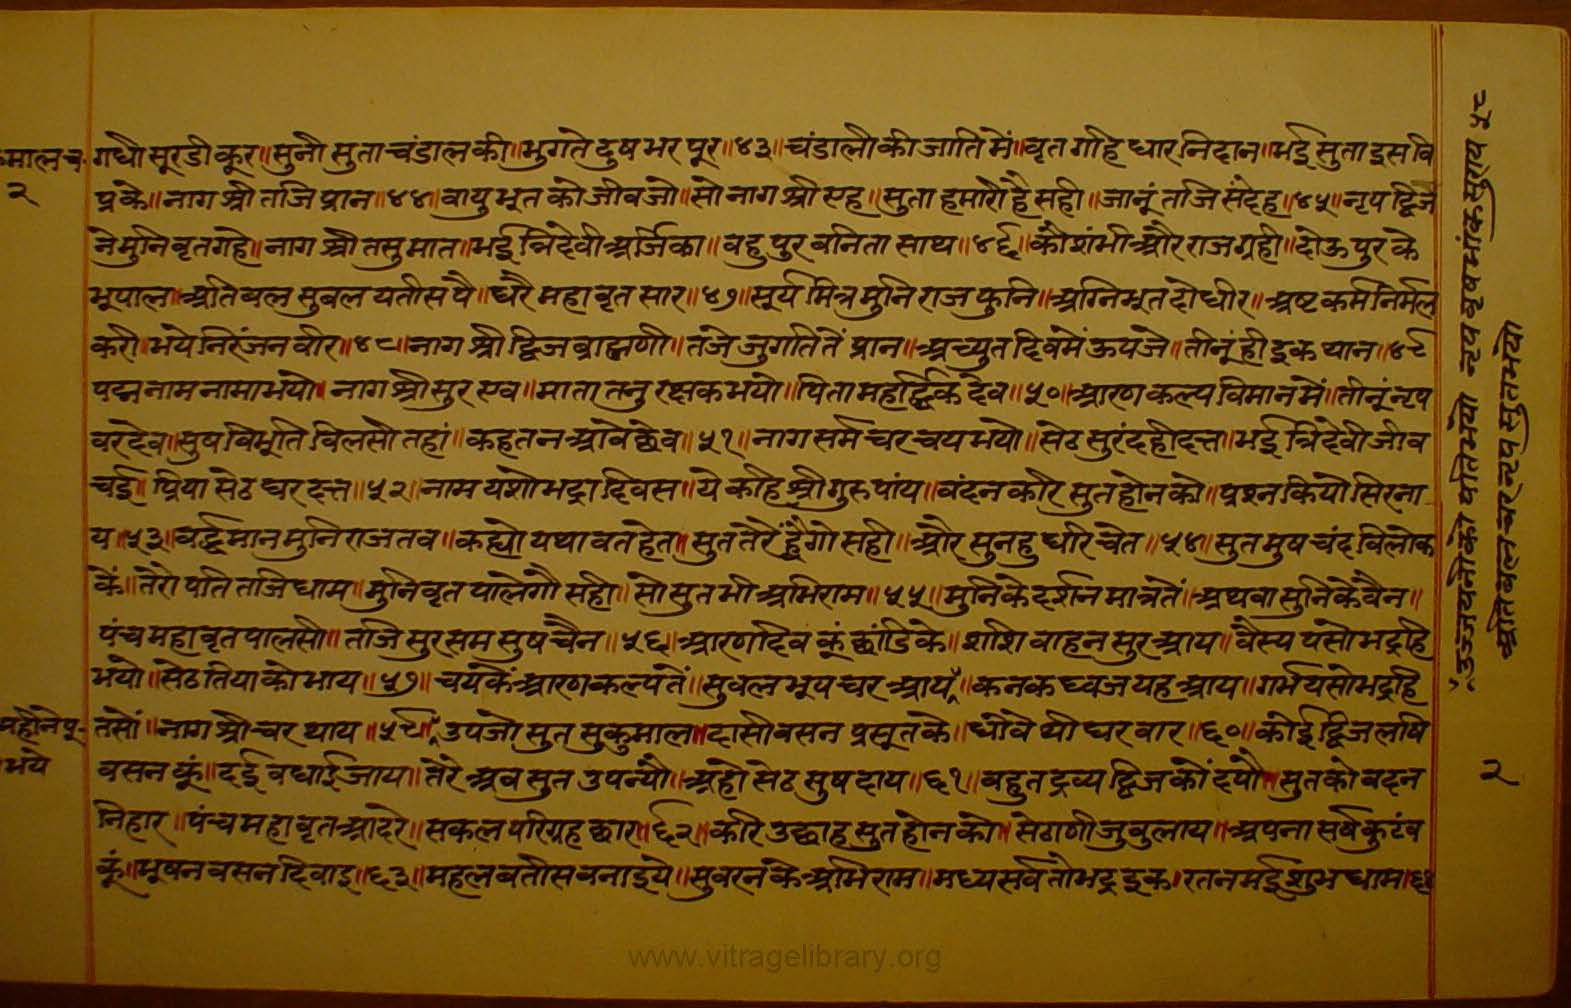 गधौ सूरडी कूर॥सुनौ सुता चंडाल की॥भुगते दुष भर पूर॥४३॥चंडाली की जाति में॥वृत गहि धार निदान॥भई सुता इस वि
प्रके॥नाग श्री तजि प्रान॥४४॥वायुभूत को जीव जो॥सो नाग श्री एह॥सुता हमारी है सही॥जानूं तजि संदेह॥४५॥नृप द्विज
ने मुनि वृत गहे॥नाग श्री तसु मात॥भई त्रिदेवी अर्जिका॥बहु पुर बनिता साथ॥४६॥कौशंभी और राजग्रही॥दोऊ पुर के
भूपाल॥अतिबल सुबल यतीस पै॥धरै महावृत सार॥४७॥सूर्य मित्र मुनिराज फुनि॥अग्निभूत दो धीर॥अष्ट कर्म निर्मल
करी॥भये निरंजन वीर॥४८॥नाग श्री द्विज ब्राह्मणी॥तजे जुगति तें प्रान॥अच्युत दिव में ऊपजे॥तीनूं ही इक थान॥४९
पद्म नाम नामा भयो॥नाग श्री सुर एव॥माता तनु रक्षक भयो॥पिता महर्द्धिक देव॥५०॥आरण कल्प विमान में॥तीनूं नृप
वर देव॥सुष विभूति विलसी तहां॥कहत न आवे छेव॥५१॥नाग सर्म चर चय भयो॥सेठ सुरंद ही दत्त॥भई त्रिदेवी जीव
चई॥प्रिया सेठ घर दत्त॥५२॥नाम यशोभद्रा दिवस॥ये कहि श्री गुरु पांय॥वंदन करि सुत होन को॥प्रश्न कियो सिर ना
य॥५३॥वर्द्धमान मुनिराज तव॥कह्यो यथावत हेत॥सुत तेरें ह्वैगो सही॥और सुनहु धरि चेत॥५४॥सुत मुष चंद विलोक
कें॥तेरो पति तजि धाम॥मुनिवृत पालेगौ सही॥सो सुत भी अभिराम॥५५॥मुनि के दर्शन मात्र तें॥अथवा सुनि के वैन॥
पंच महावृत पालसी॥तजि सुर सम सुष चैन॥५६॥आरण दिव कूं छांडि के॥शशि वाहन सुर आय॥वैस्य यसोभद्रहि
भयो॥सेठ तिया को भाय॥५७॥चयकें आरण कल्प तें॥सुवल भूप चर आय॥कनकध्वज यह आय॥गर्भ यसोभद्रहि
तसों॥नाग श्री चर थाय॥५९॥उपजो सुत सुकुमाल॥दासी वसन प्रसूत के॥धोवे थी घर वार॥६०॥कोई द्विज लषि
वसन कूं॥दई वधाई जाय॥तेरे अव सुत उपन्यौ॥अहो सेठ सुष दाय॥६१॥बहुत द्रव्य द्विज कों दयौ॥सुत को वदन
निहार॥पंच महावृत आदरे॥सकल परिग्रह छार॥६२॥करि उछाह सुत होन को॥सेठाणी जु बुलाय॥अपना सर्व कुटंव
कूं॥भूषन वसन दिवाइ॥६३॥महल वतीस वनाइये॥सुवरन के अभिराम॥मध्य सर्वतोभद्र इक॥रतन मई शुभ धाम॥६४
माल च
२
भये
उज्जयनी को पति भयो
अति बल चर सुता भयो
२
www.vitragelibrary.org